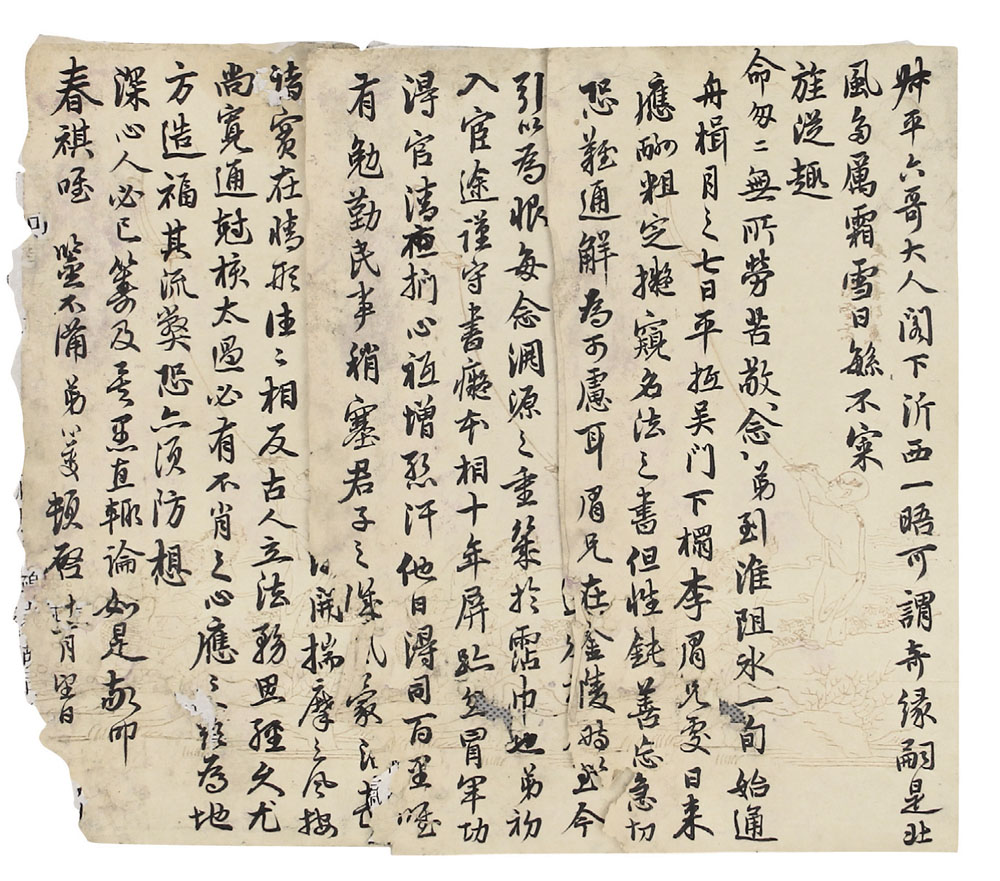 平六哥大人閣下沂西一晤可謂奇緣嗣是北
風多厲霜雪日繇不審
旌從趣
命匆匆無所勞苦敬念念弟到淮阻冰一旬始通
舟楫月之七日平抵吳門下榻李眉兄處日來
應酬粗定擬窺名法之書但性鈍善忘急切
恐難通解為可慮耳眉兄在金陵時今
引以為恨每念淵源之重策於霑巾也弟初
入宦途謹守書癡本相十年屏跡並冒軍功
得官清夜捫心祗增慙汗他日得同百里唯
有勉勤民事稍塞君子之
開揣摩之風按
諸實在情形往往相反古人立法務思經久尤
尚寬通尅核太過必有不肖之心應之為地
方造福其流獘恐亦須防想
深心人必已籌及愚直輒論如是敬叩
春祺唯鑒不備弟頓啓十二月望日